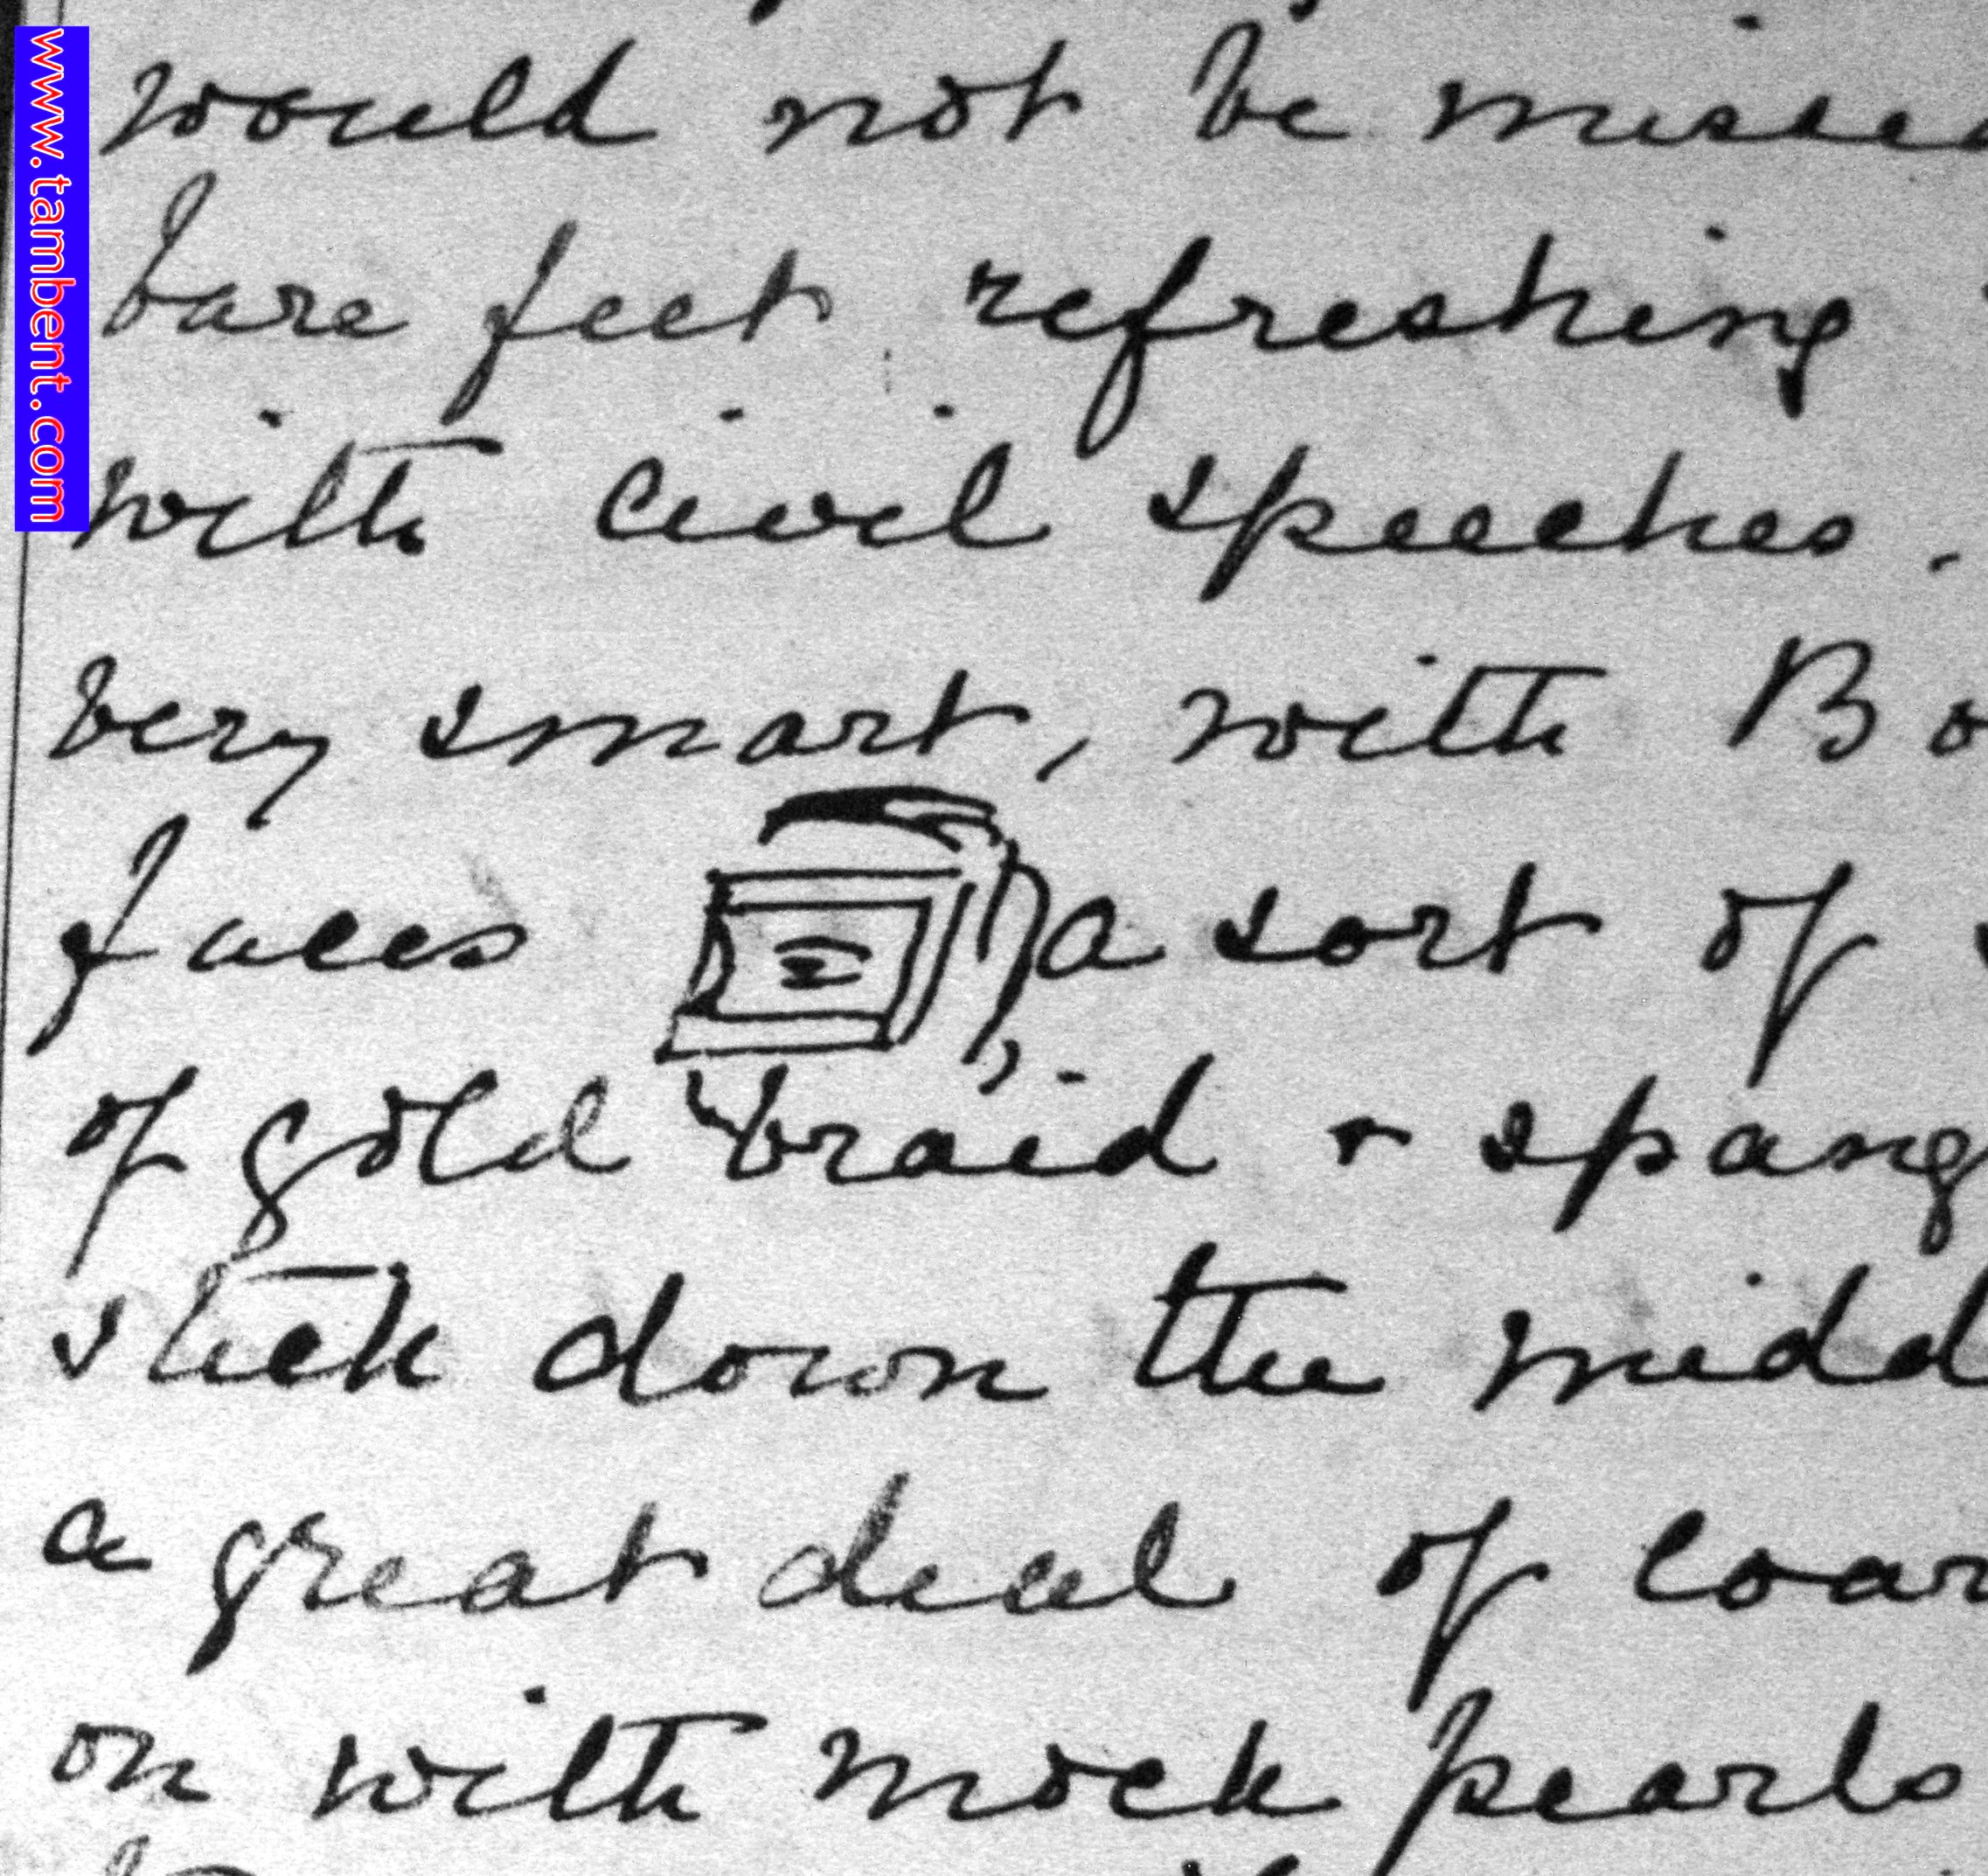 www.tambent.com
would not be
bare feet refreshing
with civil speeches.
very smart, with
faces a sort of
of gold braid +
stick down the
a great deal of
on with mock pearls